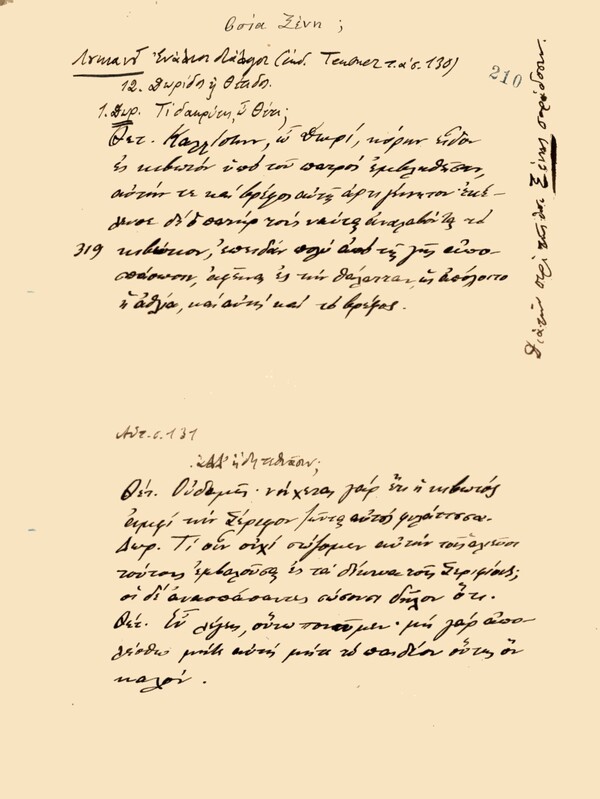 βσια Ξένη ;
Λουκιανοῦ Ἐνάλιοι διάλογοι (ἐκδ. Teubner τ. α΄ σ. 130)
210
12. Δωρίδος ἢ Θέτιδος.
1. Δωρ. Τί δακρύεις, ὦ Θέτι;
Θετ. Καλλίστην, ὦ Δωρί, κόρην εἶδον
ἐς κιβωτὸν ὑπὸ τοῦ πατρὸς ἐμβληθεῖσαν,
αὐτήν τε καὶ βρέφος αὐτῆς ἀρτιγέννητον· ἐκέ-
λευσε δὲ ὁ πατὴρ τοὺς ναύτας ἀναλαβόντας τὸ
319 κιβώτιον, ἐπειδὰν πολὺ ἀπὸ τῆς γῆς ἀπο-
σπάσωσιν, ἀφεῖναι ἐς τὴν θάλατταν, ὡς ἀπόλοιτο
ἡ ἀθλία, καὶ αὐτὴ καὶ τὸ βρέφος.
Διὰ τὴν περὶ τῆς Ξένης παράδοσιν.
Αὐτ. σ. 131
Θέτ. Οὐδαμῶς· νήχεται γὰρ ἔτι ἡ κιβωτὸς
ἀμφὶ τὴν Σέριφον ζῶντας αὐτοὺς φυλάττουσα.
Δωρ. Τί οὖν οὐχὶ σώζομεν αὐτὴν τοῖς ἁλιεῦσι
τούτοις ἐμβαλοῦσαι ἐς τὰ δίκτυα τοῖς Σεριφίοις;
οἱ δὲ ἀνασπάσαντες σώσουσι δῆλον ὅτι.
Θέτ. Εὖ λέγεις, οὕτω ποιῶμεν· μὴ γὰρ ἀπο-
λέσθω μήτε αὐτὴ μήτε τὸ παιδίον οὕτως ὂν
καλόν.